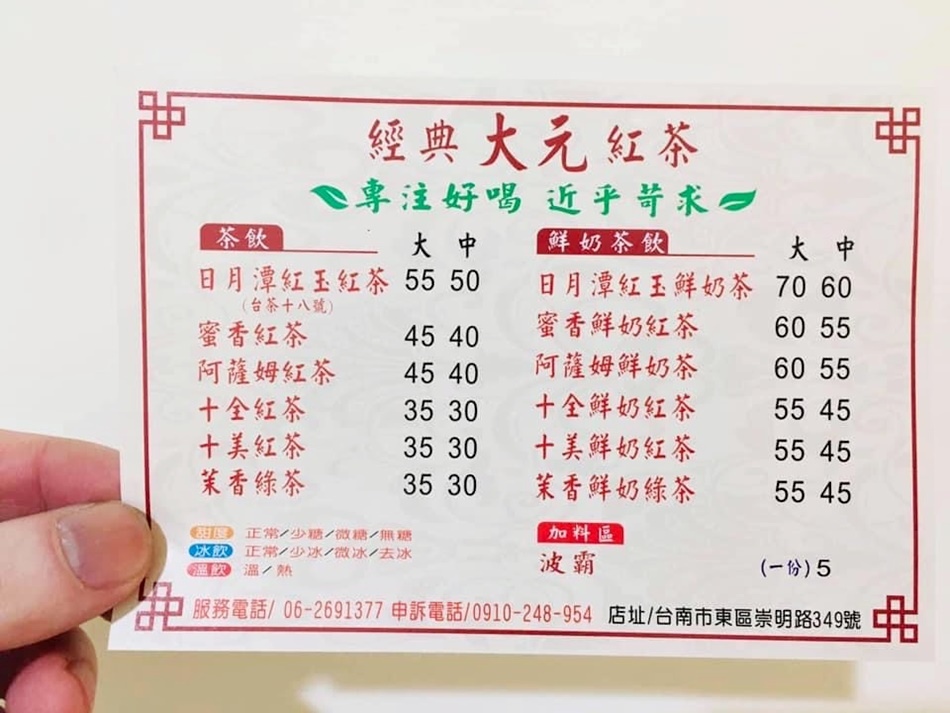 經典大元紅茶
專注好喝 近乎苛求
茶飲 大 中
日月潭紅玉紅茶 55 50
(台茶十八號)
蜜香紅茶 45 40
阿薩姆紅茶 45 40
十全紅茶 35 30
十美紅茶 35 30
茉香綠茶 35 30
甜度 正常/少糖/微糖/無糖
冰飲 正常/少冰/微冰/去冰
溫飲 溫/熱
鮮奶茶飲 大 中
日月潭紅玉鮮奶茶 70 60
蜜香鮮奶紅茶 60 55
阿薩姆鮮奶茶 60 55
十全鮮奶紅茶 55 45
十美鮮奶紅茶 55 45
茉香鮮奶綠茶 55 45
加料區
波霸 (一份) 5
服務電話/ 06-2691377 申訴電話/0910-248-954 店址/台南市東區崇明路349號